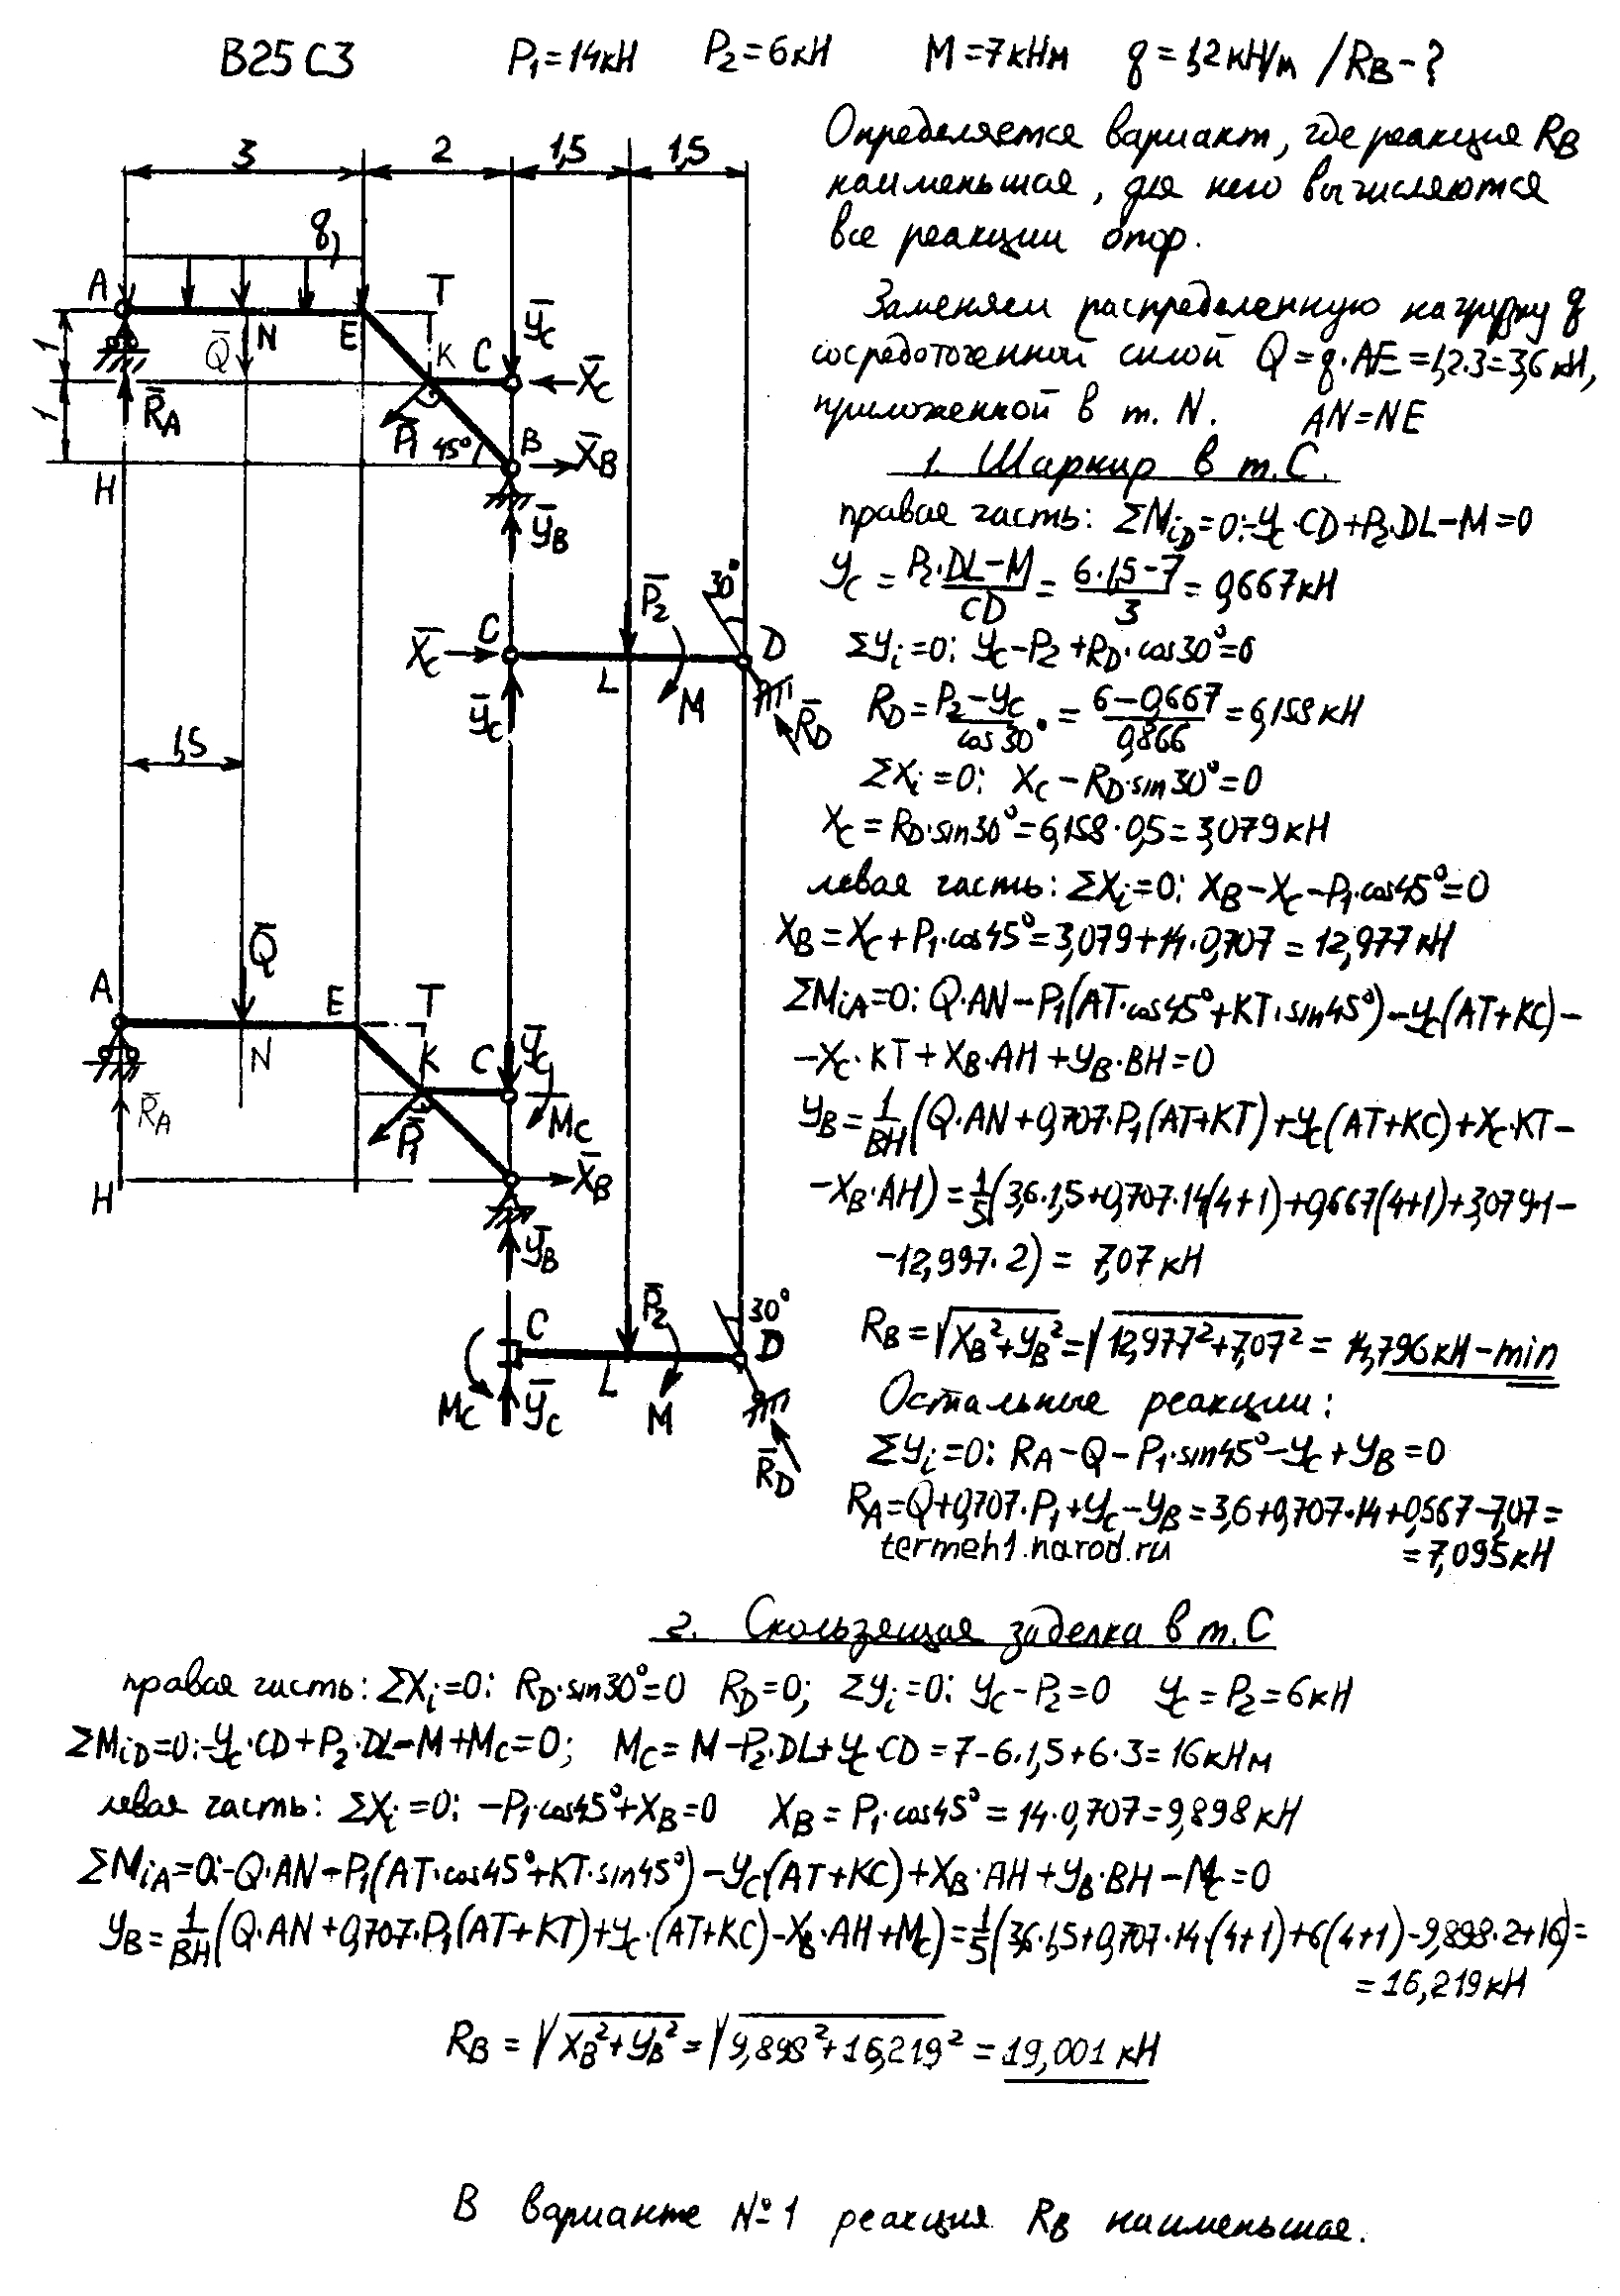 В25 С3 P₁=14кН P₂=6кН М=7кНм q=1,2кН/м /R_B-?
Определяется вариант, где реакция R_B
наименьшая, для него вычисляются
все реакции опор.
Заменяем распределенную нагрузку q
сосредоточенной силой Q=q·AE=1,2·3=3,6кН,
приложенной в т. N. AN=NE
1. Шарнир в т.С.
правая часть: ΣM_iD=0: -Y_C·CD+P₂·DL-M=0
Y_C = (P₂·DL-M)/CD = (6·1,5-7)/3 = 0,667кН
ΣY_i=0: Y_C-P₂+R_D·cos30°=0
R_D = (P₂-Y_C)/cos30° = (6-0,667)/0,866 = 6,158кН
ΣX_i=0: X_C-R_D·sin30°=0
X_C=R_D·sin30°=6,158·0,5=3,079кН
левая часть: ΣX_i=0: X_B-X_C-P₁·cos45°=0
X_B=X_C+P₁·cos45°=3,079+14·0,707=12,977кН
ΣM_iA=0: Q·AN-P₁(AT·cos45°+KT·sin45°)-Y_C(AT+KC)-
-X_C·KT+X_B·AH+Y_B·BH=0
Y_B=1/BH(Q·AN+0,707·P₁(AT+KT)+Y_C(AT+KC)+X_C·KT-
-X_B·AH)=1/5(3,6·1,5+0,707·14(4+1)+0,667(4+1)+3,079·1-
-12,997·2)= 7,07кН
R_B=√(X_B²+Y_B²)=√(12,977²+7,07²)=14,796кН-min
Остальные реакции:
ΣY_i=0: R_A-Q-P₁·sin45°-Y_C+Y_B=0
R_A=Q+0,707·P₁+Y_C-Y_B=3,6+0,707·14+0,667-7,07=
termeh1.narod.ru =7,095кН
3 2 1,5 1,5
q
A N E T K C Y_C X_C
1 1 Q R_A P₁ 45° B X_B
H Y_B
C X_C Y_C P₂ L M 30° D R_D
1,5
Q
A N E T K C Y_C M_C
R_A P₁ X_B
H Y_B
M_C Y_C C P₂ L M 30° D R_D
2. Скользящая заделка в т.С
правая часть: ΣX_i=0: R_D·sin30°=0 R_D=0; ΣY_i=0: Y_C-P₂=0 Y_C=P₂=6кН
ΣM_iD=0: -Y_C·CD+P₂·DL-M+M_C=0; M_C=M-P₂·DL+Y_C·CD=7-6·1,5+6·3=16кНм
левая часть: ΣX_i=0: -P₁·cos45°+X_B=0 X_B=P₁·cos45°=14·0,707=9,898кН
ΣM_iA=0: -Q·AN-P₁(AT·cos45°+KT·sin45°)-Y_C(AT+KC)+X_B·AH+Y_B·BH-M_C=0
Y_B=1/BH(Q·AN+0,707·P₁(AT+KT)+Y_C·(AT+KC)-X_B·AH+M_C)=1/5(3,6·1,5+0,707·14·(4+1)+6(4+1)-9,898·2+16)=
=16,219кН
R_B=√(X_B²+Y_B²)=√(9,898²+16,219²)=19,001кН
В варианте №1 реакция R_B наименьшая.